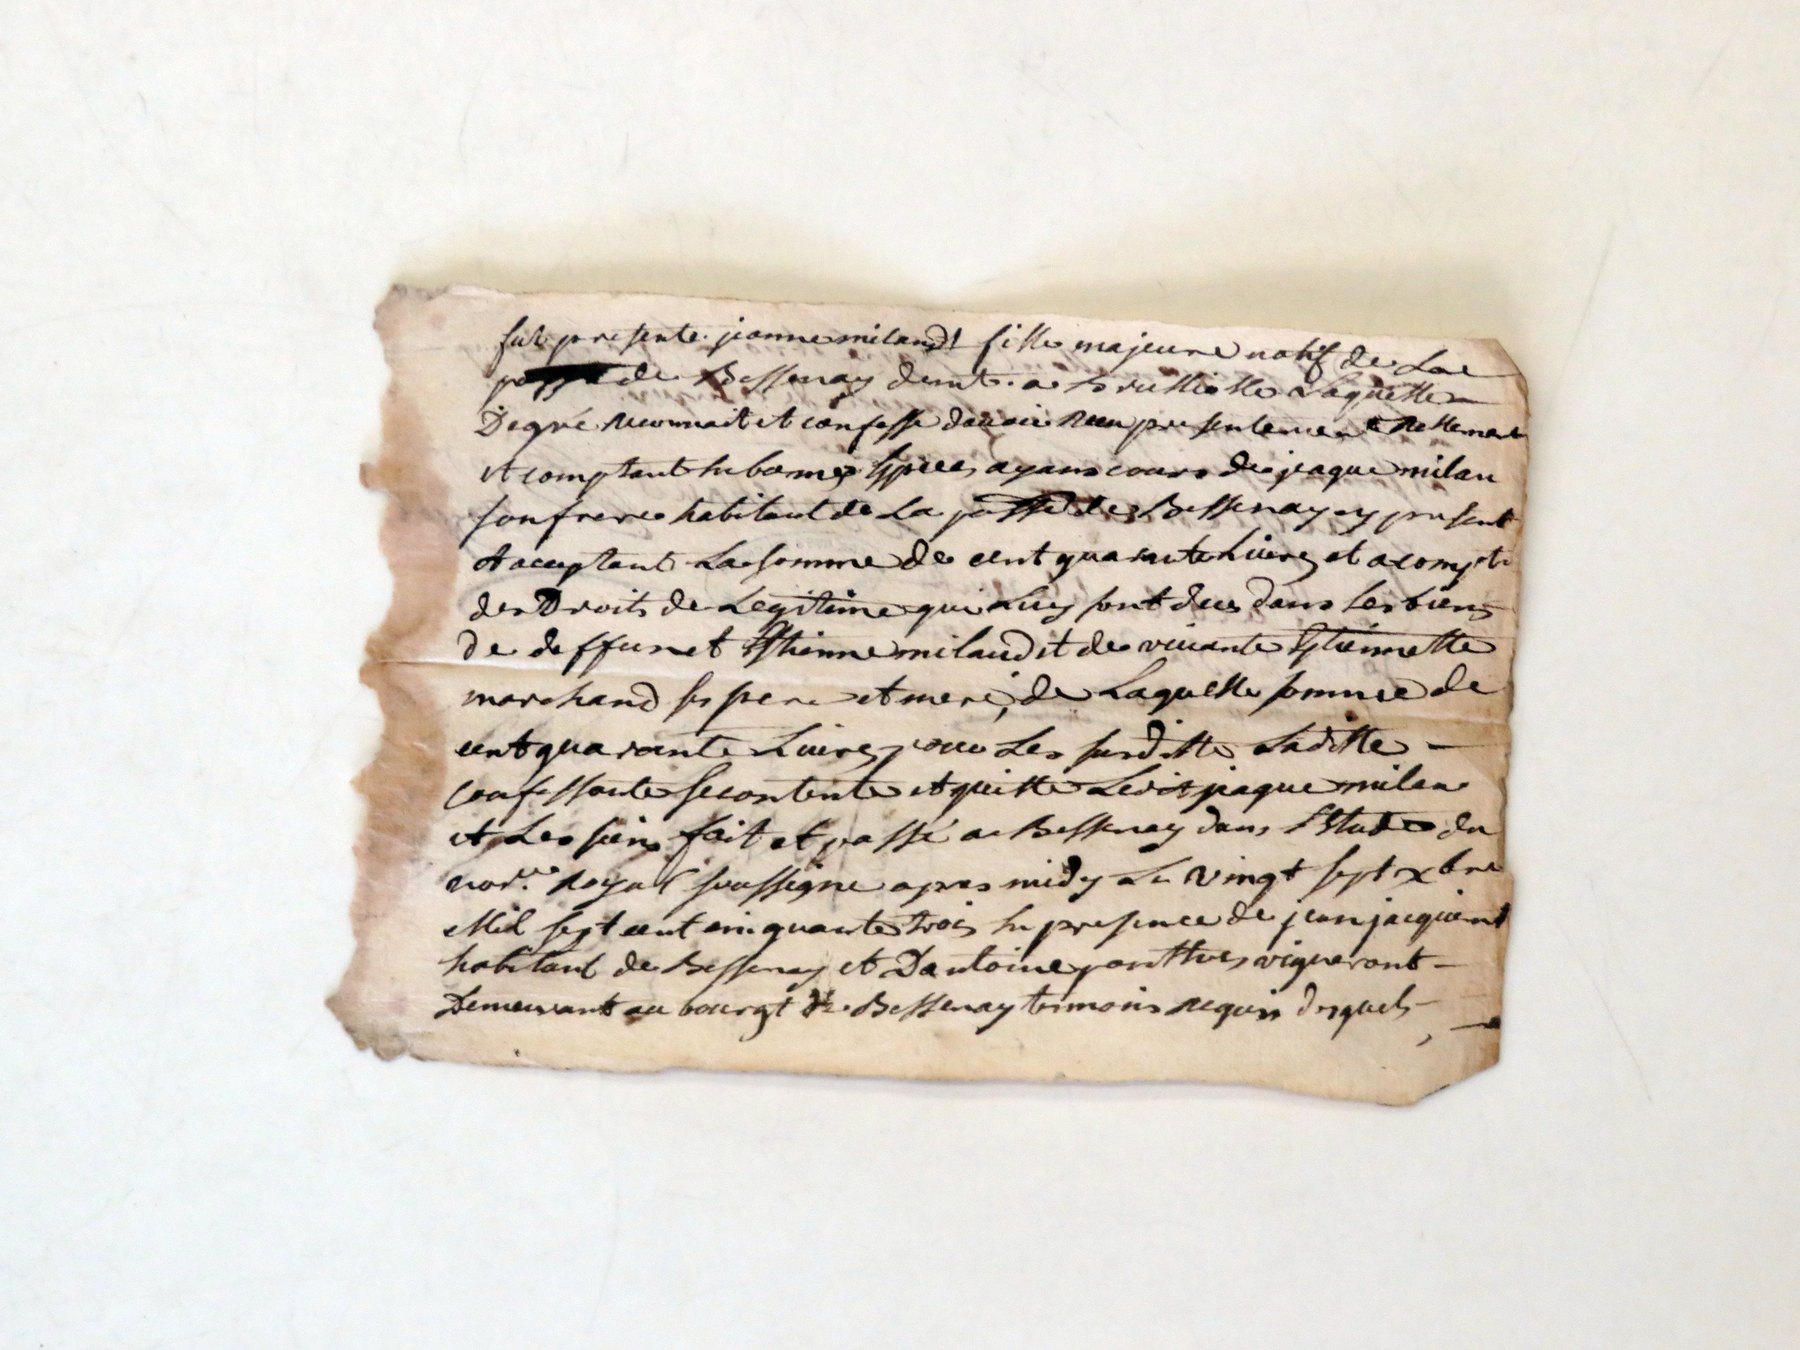 fut presente jeanne miland fille majeure natif de La
de Bessenay demt. a Brulliolle Laquelle
Degré reconnait et confesse dauoir receu presentement reellement
et comptant en bonnes especes ayans cours de jaque milan
son frere habitant de La passe de Bessenay cy present
et acceptant La somme de cent quarante Liures et acompte
des Droits de Legitime qui Luy sont dues dans Les biens
de deffunct Estienne miland et de viuante Estiennette
marchand ses pere et mere, de Laquelle somme de
cent quarante Liures, Laditte
confessante se contente et quitte Ledit jaque milan
et Les siens fait et passé a Bessenay dans L'Etude du
nore. Royal soussigne apres midy Le vingt sept xbre
Mil sept cent cinquante trois en presence de jean jacquemt
habitant de Bessenay et D'antoine ponthus vigneront
Demeurant au bourgt de Bessenay temoins requis desquels